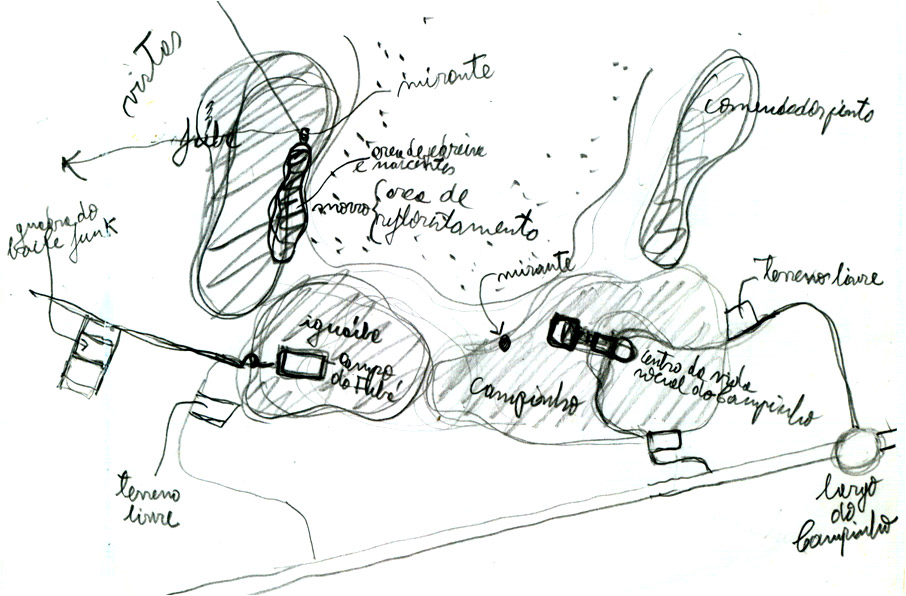 vistas
mirante
comendador pinto
fubá
área de pedreira
e nascentes
morro
área de
reflorestamento
quadra do
baile funk
mirante
terreno livre
iguaíba
campo
do Fubá
Campinho
centro da vida
social do Campinho
terreno
livre
largo
do
Campinho